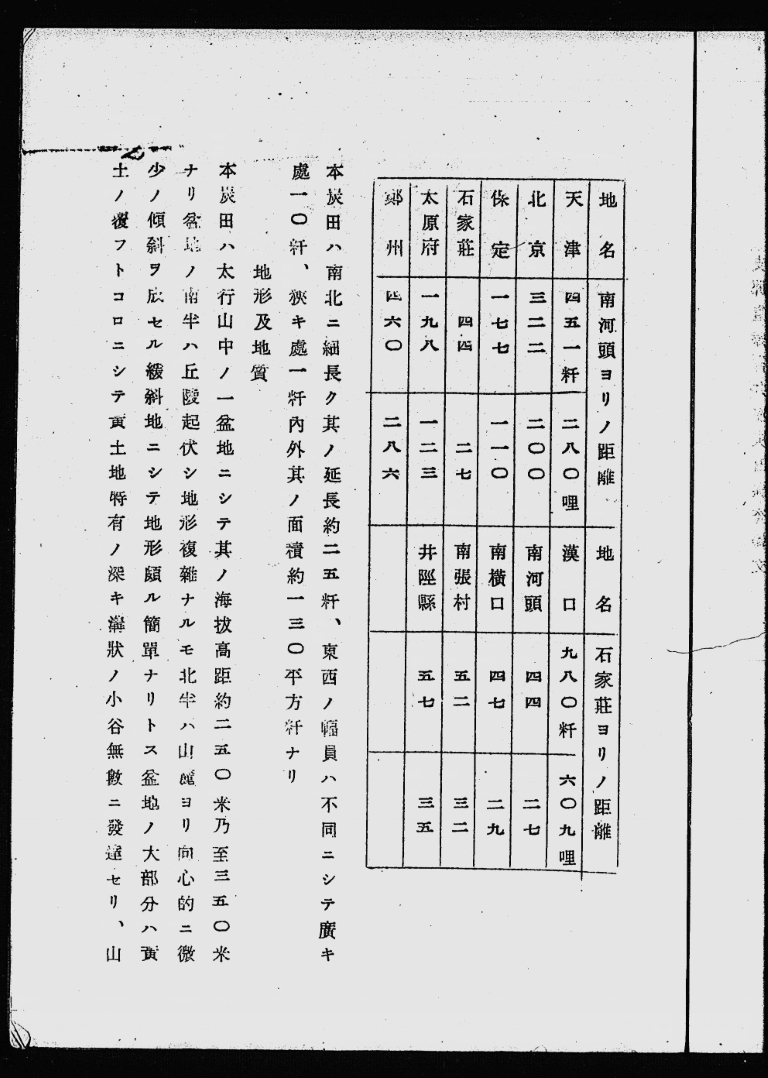 地名 南河頭ヨリノ距離 地名 石家莊ヨリノ距離
天津 四五一粁 二八〇哩 漢口 九八〇粁 六〇九哩
北京 三二二 二〇〇 南河頭 四四 二七
保定 一七七 一一〇 南橫口 四七 二九
石家莊 四四 二七 南張村 五二 三二
太原府 一九八 一二三 井陘縣 五七 三五
鄭州 四六〇 二八六
本炭田ハ南北ニ細長ク其ノ延長約二五粁、東西ノ幅員ハ不同ニシテ廣キ
處一〇粁、狹キ處一粁內外其ノ面積約一三〇平方粁ナリ
地形及地質
本炭田ハ太行山中ノ一盆地ニシテ其ノ海拔高距約二五〇米乃至三五〇米
ナリ盆地ノ南半ハ丘陵起伏シ地形複雜ナルモ北半ハ山麓ヨリ向心的ニ微
少ノ傾斜ヲ成セル緩斜地ニシテ地形頗ル簡單ナリトス盆地ノ大部分ハ黃
土ノ覆フトコロニシテ黃土地特有ノ深キ溝狀ノ小谷無數ニ發達セリ、山